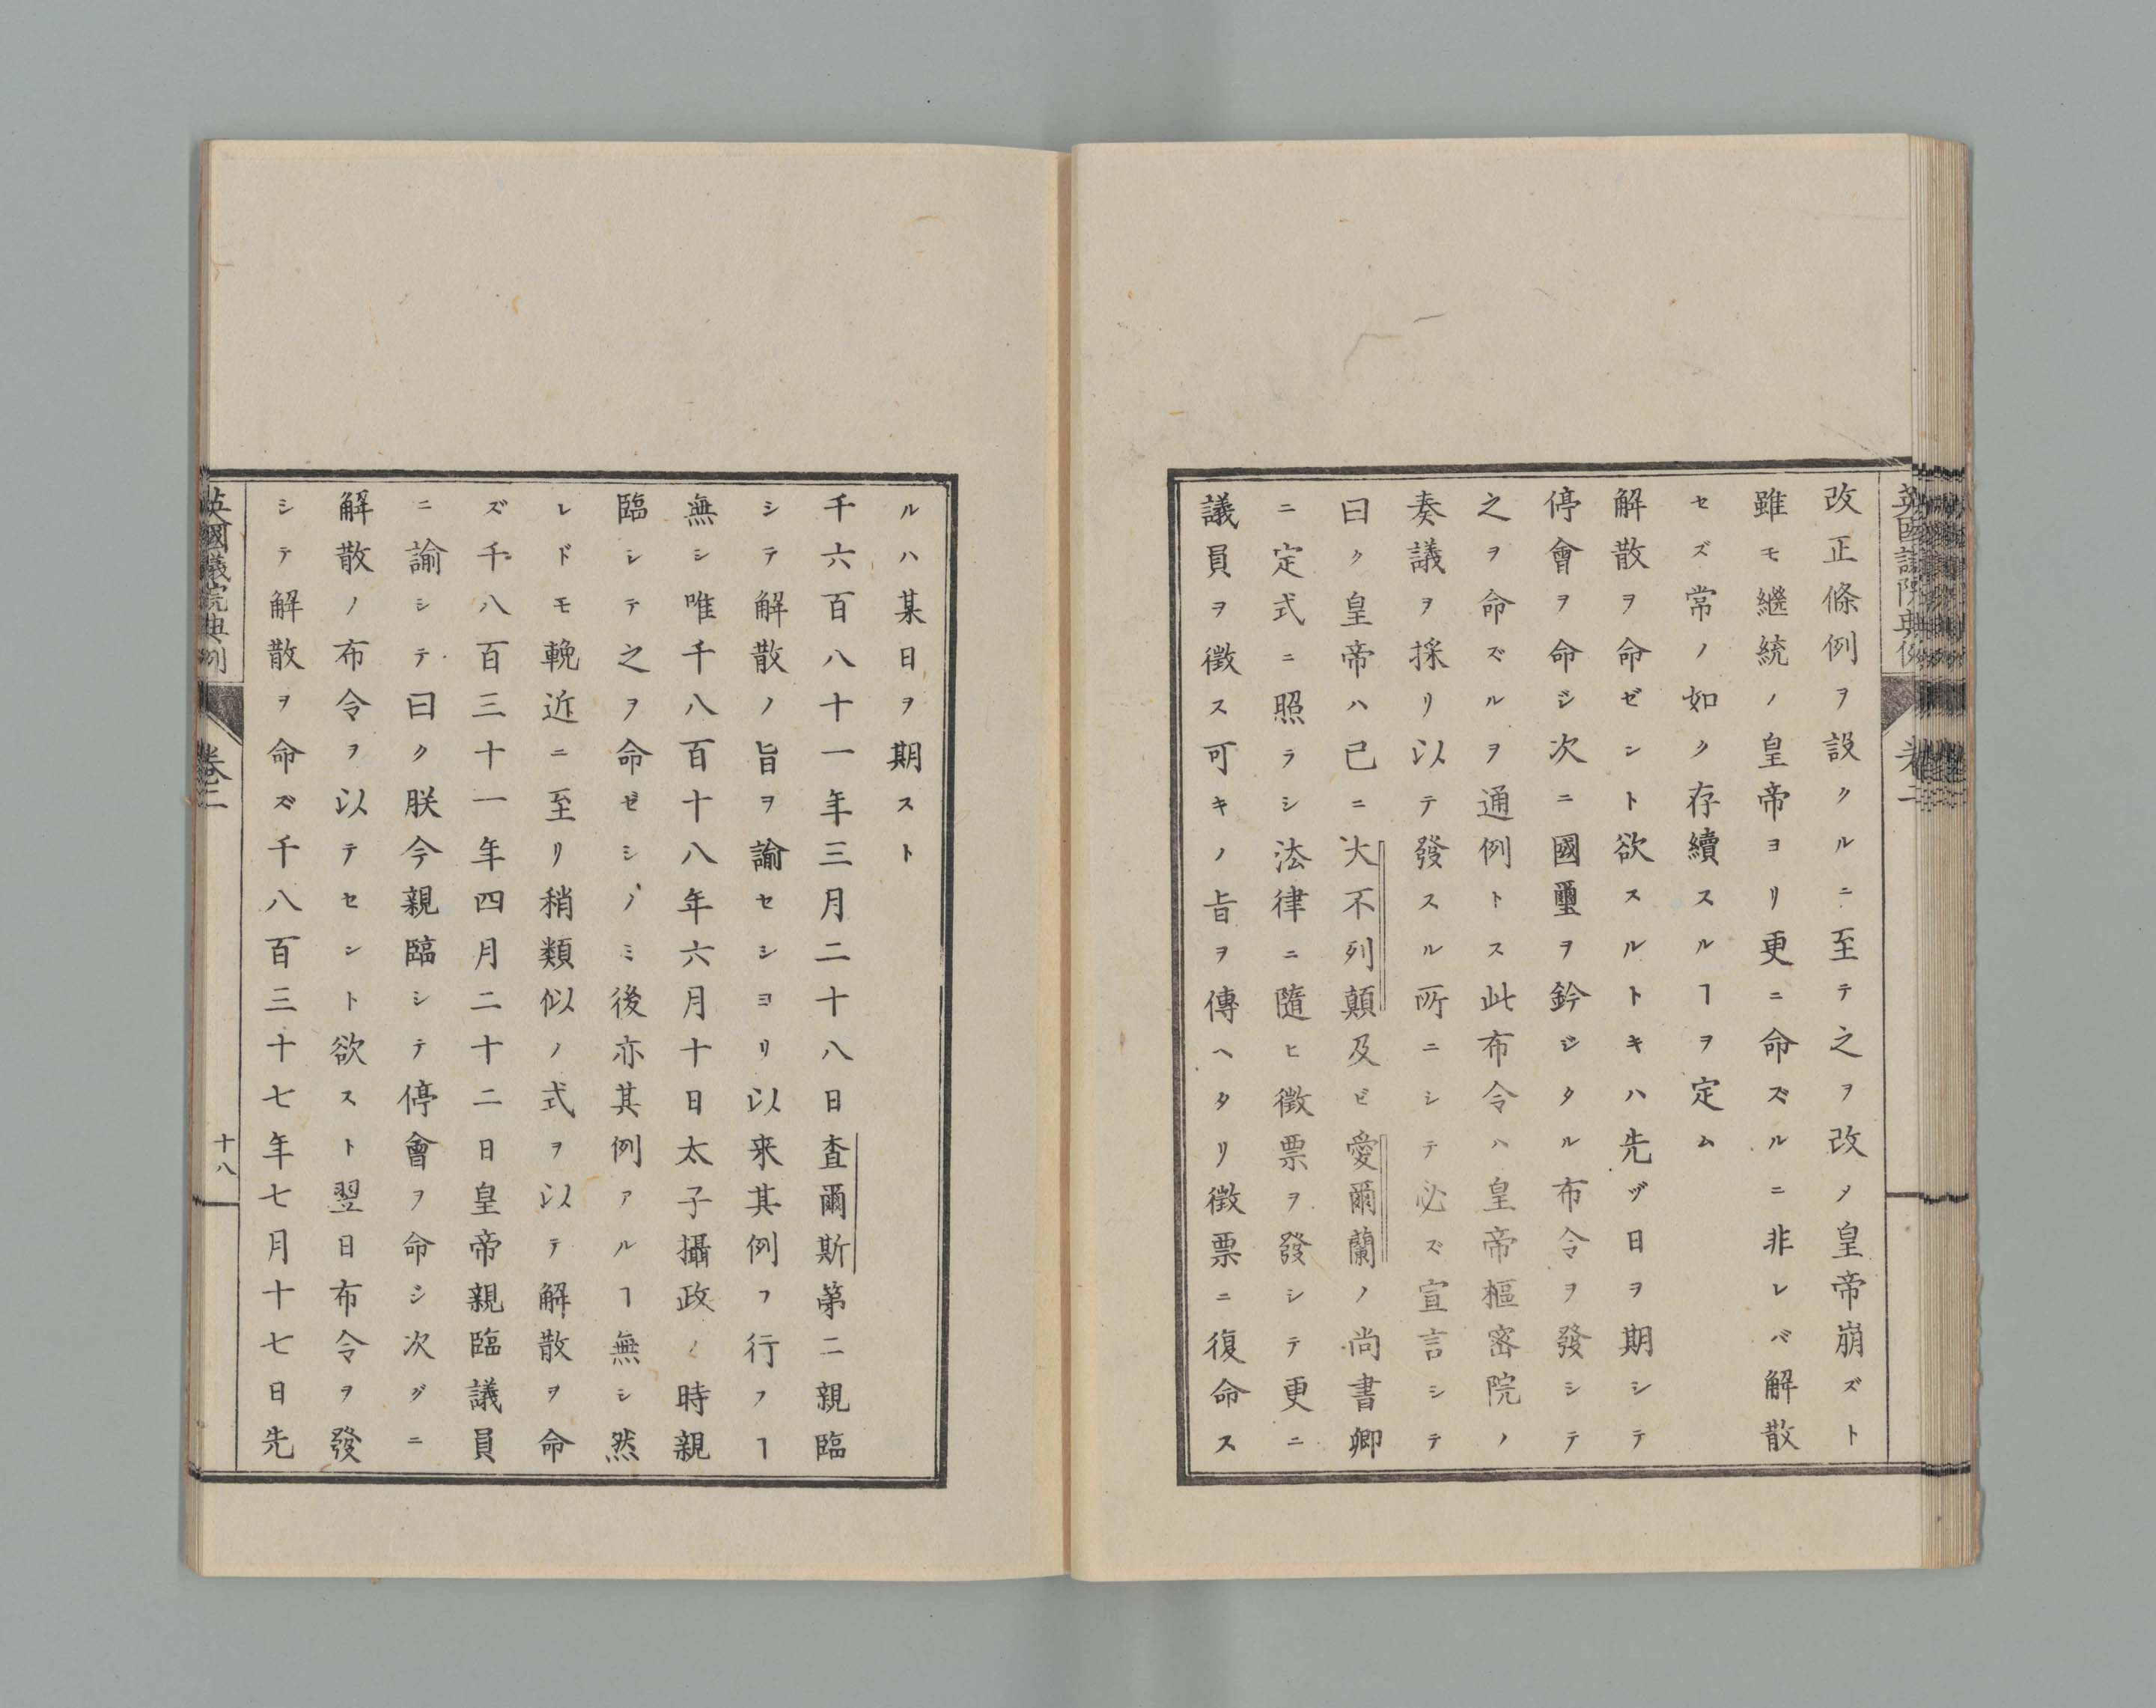 改正條例ヲ設クルニ至テ之ヲ改メ皇帝崩ズト
雖モ繼統ノ皇帝ヨリ更ニ命ズルニ非レバ解散
セズ常ノ如ク存續スルヿヲ定ム
解散ヲ命ゼント欲スルトキハ先ヅ日ヲ期シテ
停會ヲ命ジ次ニ國璽ヲ鈐ジタル布令ヲ發シテ
之ヲ命ズルヲ通例トス此布令ハ皇帝樞密院ノ
奏議ヲ採リ以テ發スル所ニシテ必ズ宣言シテ
曰ク皇帝ハ已ニ大不列顛及ビ愛爾蘭ノ尚書卿
ニ定式ニ照ラシ法律ニ隨ヒ徴票ヲ發シテ更ニ
議員ヲ徴ス可キノ旨ヲ傳ヘタリ徴票ニ復命ス
ルハ某日ヲ期スト
千六百八十一年三月二十八日査爾斯第二親臨
シテ解散ノ旨ヲ諭セシヨリ以来其例フ行フヿ
無シ唯千八百十八年六月十日太子攝政ノ時親
臨シテ之ヲ命ゼシノミ後亦其例アルヿ無シ然
レドモ輓近ニ至リ稍類似ノ式ヲ以テ解散ヲ命
ズ千八百三十一年四月二十二日皇帝親臨議員
ニ諭シテ曰ク朕今親臨シテ停會ヲ命シ次グニ
解散ノ布令ヲ以テセント欲スト翌日布令ヲ發
シテ解散ヲ命ズ千八百三十七年七月十七日先
英國議院典例
卷二
十八